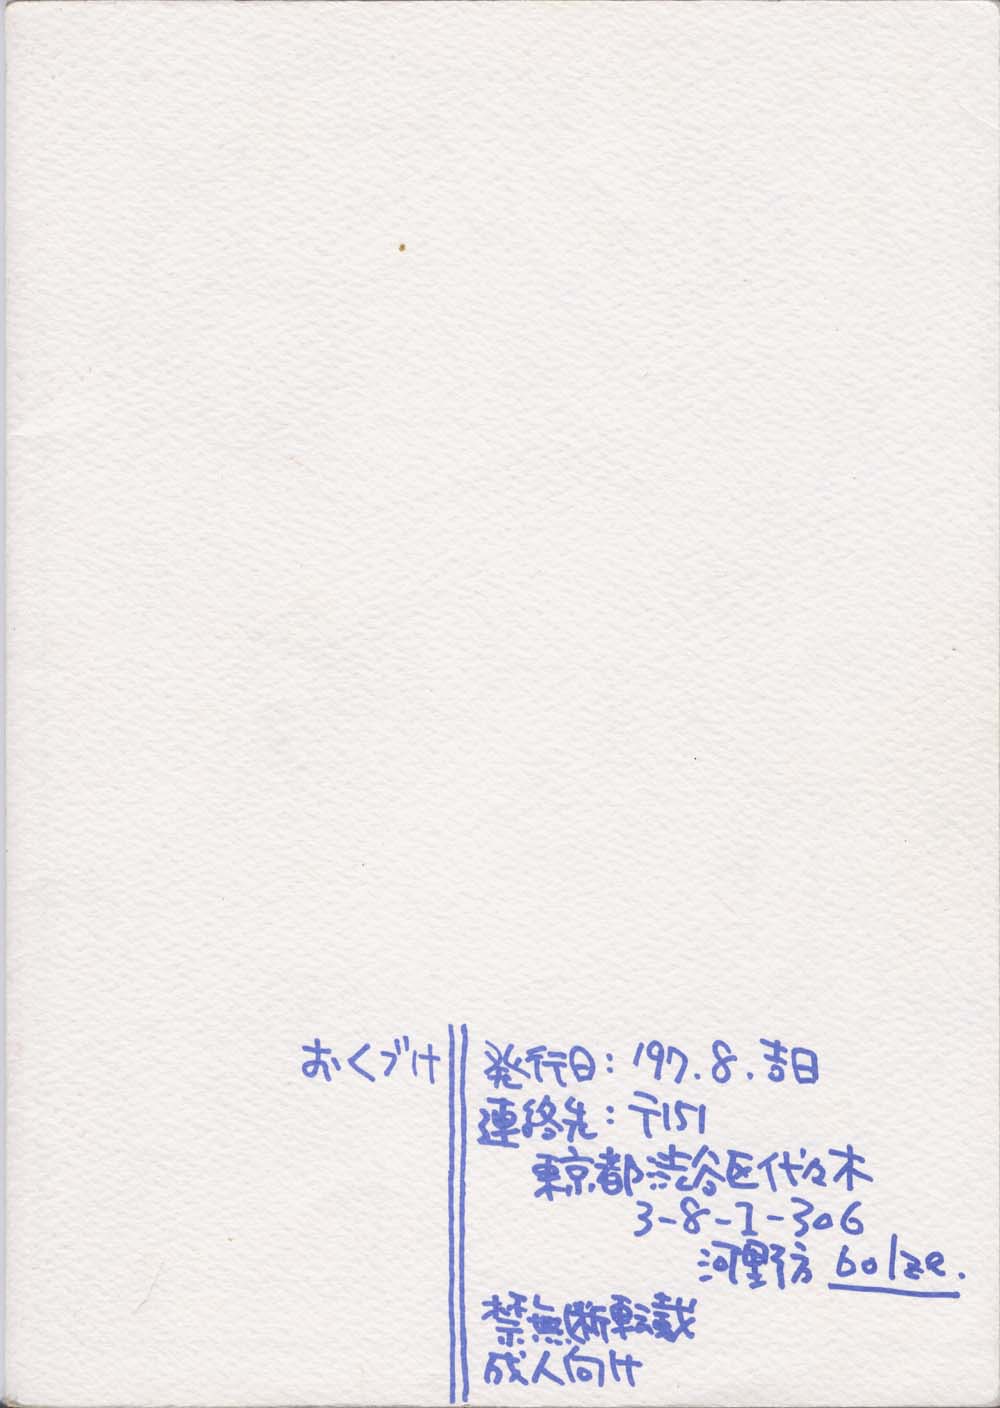 おくづけ
発行日: '97.8.吉日
連絡先: 〒151
東京都渋谷区代々木
3-8-1-306
河野方 bolze.
禁無断転載
成人向け